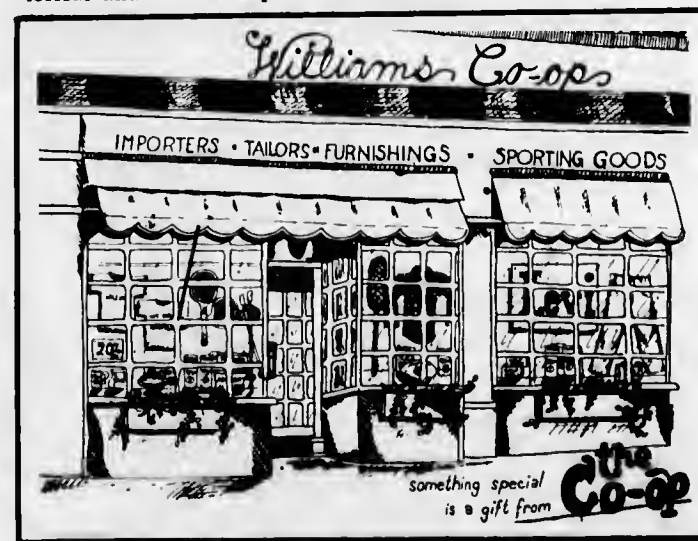 Williams Co-ops
IMPORTERS • TAILORS • FURNISHINGS • SPORTING GOODS
20%
something special
is a gift from
the
Co-op